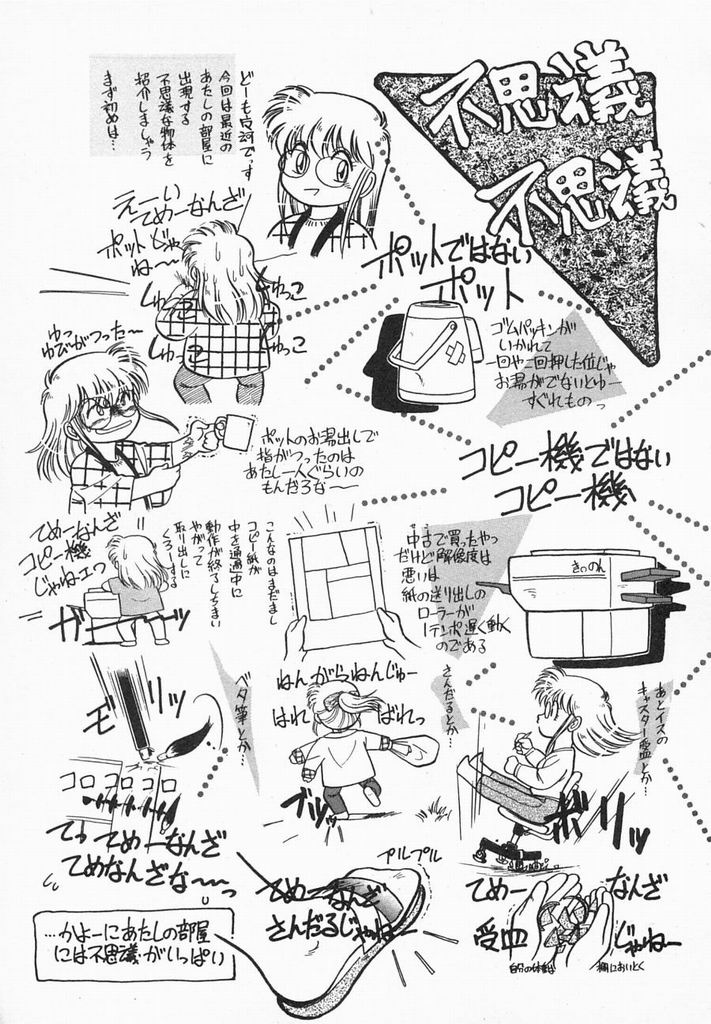 不思議
不思議
今回は最近の
あたしの部屋に
出現する
不思議な物体を
紹介しましょう
まず初めは…
ポットではない
ポット
ゴムパッキンが
いかれて
一回や二回押した位じゃ
お湯がでないとゆー
すぐれものっ
えーい
てめーなんざ
ポットじゃ
ね〜〜
しゅっこ
しゅっこ
しゅっこ
しゅっこ
ゆっ
ゆびがつった〜
ポットのお湯出しで
指がつったのは
あたし一人ぐらいの
もんだろな〜〜
コピー機ではない
コピー機
きゃのん
中古で買ったやつ
だけど解像度は
悪いは
紙の送り出しの
ローラーが
1テンポ遅く動く
のである
こんなのはまだまし
コピー紙が
中を通過中に
動作が終了しちまい
やがって
取り出しに
くろーする
てめーなんざ
コピー機
じゃねェっ
ガーー
あとイスの
キャスター受皿とか…
ボリッ
てめー
なんざ
受皿
じゃねー
さんだるとか…
ねんがらねんじゅー
はれ
ばれっ
ブッ
プルプル
てめーなんざ
さんだるじゃねー
ベタ筆とか…
モソッ
コロコロコロ
てってめーなんざ
てめなんざな〜〜っ
…かよーにあたしの部屋
には不思議がいっぱい